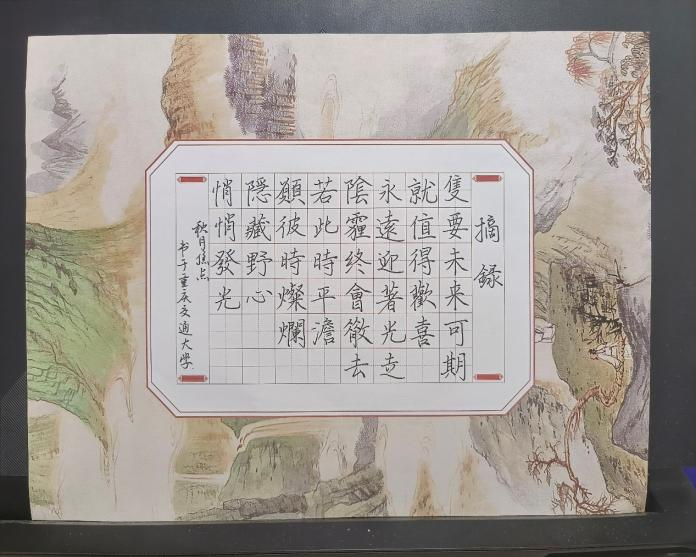 摘錄
隻要未来可期
就值得歡喜
永遠迎著光走
陰霾終會散去
若此時平澹
願彼時燦爛
隱藏野心
悄悄發光
书于重庆交通大学